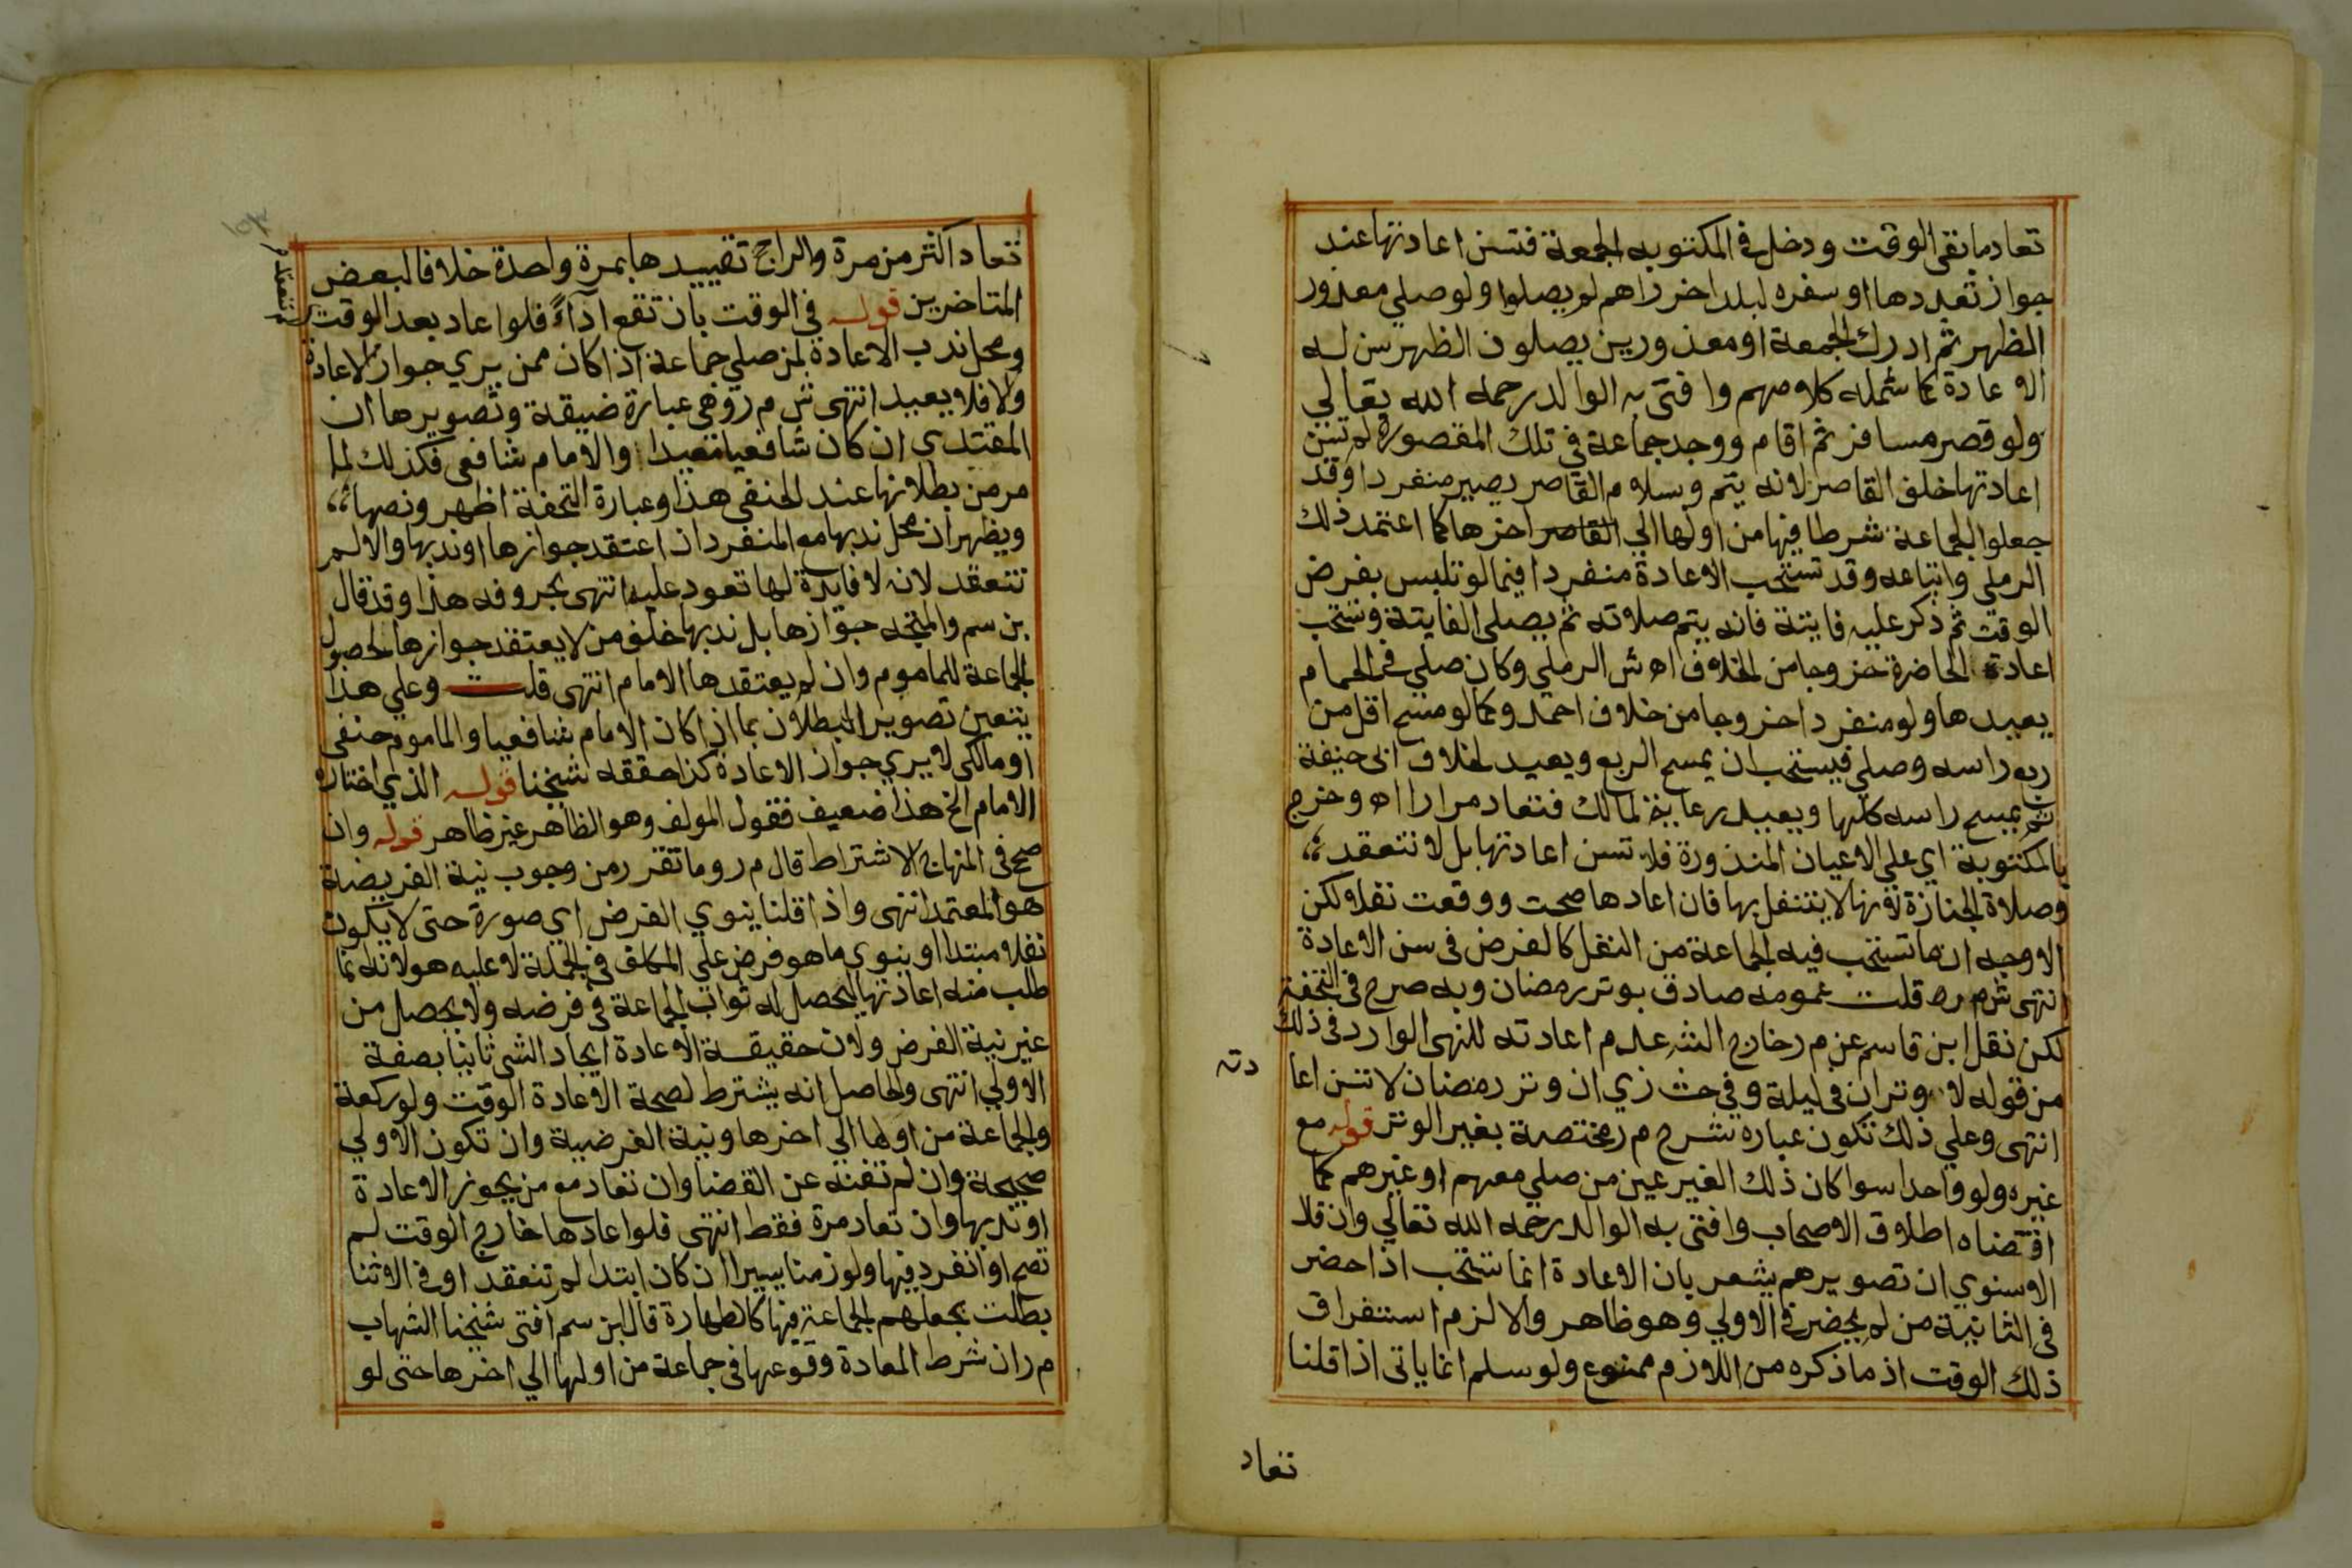 تعاد ما بقى الوقت ودخل في المكتوبه الجمعة فتسن اعادتها عند
جواز تعددها او سفره لبلد اخر راهم لم يصلوا ولو صلي معذور
الظهر ثم ادرك الجمعة او معذورين يصلون الظهر سن له
الاعادة كما شمله كلامهم وافتى به الوالد رحمه الله تعالي
ولو قصر مسافر ثم اقام ووجد جماعة في تلك المقصورة لم تسن
اعادتها خلف القاصر لانه يتم وبسلام القاصر يصير منفردا وقد
جعلوا الجماعة شرطا فيها من اولها الي القاصر اخرها كما اعتمد ذلك
الرملي واتباعه وقد تستحب الاعادة منفردا فيما لو تلبس بفرض
الوقت ثم ذكر عليه فايتة فانه يتم صلاته ثم يصلي الفايتة وتستحب
اعادة الحاضرة خروجا من الخلاف اه ش الرملي وكان صلي في الحمام
يعيدها ولو منفردا خروجا من خلاف احمد وكما لو مسح اقل من
ربع راسه وصلي فيستحب ان يمسح الربع ويعيد لخلاف ابى حنيفة
ثم يمسح راسه كلها ويعيد رعاية لمالك فتعاد مرارا اه وخرج
بالمكتوبة اي على الاعيان المنذورة فلا تسن اعادتها بل لا تنعقد
وصلاة الجنازة لانها لا يتنفل بها فان اعادها صحت ووقعت نفلا ولكن
الاوجه ان ما تستحب فيه الجماعة من النفل كالفرض في سن الاعادة
انتهى ش م ر قلت عمومه صادق بوتر رمضان وبه صرح في التحفة
لكن نقل ابن قاسم عن م ر خارج الشر عدم اعادته للنهى الوارد في ذلك
من قوله لا وتران في ليلة وفي حث زي ان وتر رمضان لا تسن اعا
دته
انتهى وعلي ذلك تكون عباره شرح م ر مختصة بغير الوتر قوله مع
غيره ولو واحدا سوا كان ذلك الغير عين من صلي معهم او غيرهم كما
اقتضاه اطلاق الاصحاب وافتى به الوالد رحمه الله تعالي وان قلا
الاوسنوي ان تصويرهم يشعر بان الاعادة انما تستحب اذا حضر
في الثانية من لم يحضر في الاولي وهو ظاهر والا لزم استغراق
ذلك الوقت اذ ما ذكره من اللازوم ممنوع ولو سلم انما ياتى اذا قلنا
تعاد
تعاد اكثر من مرة والراجح تقييدها بمرة واحدة خلافا لبعض
المتاخرين قوله في الوقت بان تقع اداءً فلو اعاد بعد الوقت
لم تنعقد م
ومحل ندب الاعادة لمن صلي جماعة اذا كان ممن يري جواز الاعادة
والا فلا يعيد انتهى ش م ر وهي عبارة ضيقة وتصويرها ان
المقتدي ان كان شافعيا معيدا والامام شافعي فكذلك لما
مر من بطلانها عند الحنفي هذا وعبارة التحفة اظهر ونصها
ويظهر ان محل ندبها مع المنفرد ان اعتقد جوازها او ندبها والا لم
تنعقد لانه لا فايدة لها تعود عليه انتهى بحروفه هذا وقد قال
بن سم والمتجه جوازها بل ندبها خلف من لا يعتقد جوازها لحصول
الجماعة للماموم وان لم يعتقدها الامام انتهى قلت وعلي هذا
يتعين تصوير البطلان بما اذا كان الامام شافعيا والماموم حنفي
او مالكي لا يري جواز الاعادة كذا حققه شيخنا قوله الذي اختاره
الامام الخ هذا ضعيف فقول المولف وهو الظاهر غير ظاهر قوله وان
صح في المنهاج الاشتراط قال م ر وما تقرر من وجوب نية الفريضة
هو المعتمد انتهى واذا قلنا ينوي الفرض اي صورة حتى لا يكون
نفلا مبتدا او ينوي ما هو فرض علي المكلف في الجملة لا عليه هو لانه انما
طلب منه اعادتها ليحصل له ثواب الجماعة في فرضه ولا يحصل من
غير نية الفرض ولان حقيقة الاعادة ايجاد الشى ثانيا بصفة
الاولي انتهى والحاصل انه يشترط لصحة الاعادة الوقت ولو ركعة
والجماعة من اولها الي اخرها ونية الفرضية وان تكون الاولي
صحيحة وان لم تغنه عن القضا وان تعاد مع من يجوز الاعادة
او ندبها وان تعاد مرة فقط انتهى فلو اعادها خارج الوقت لم
تصح او انفرد فيها ولو زمنا يسيرا ان كان ابتدا لم تنعقد او في الاثنا
بطلت بجعلهم الجماعة فيها كالطهارة قال ابن سم افتى شيخنا الشهاب
م ر ان شرط المعادة وقوعها في جماعة من اولها الي اخرها حتى لو